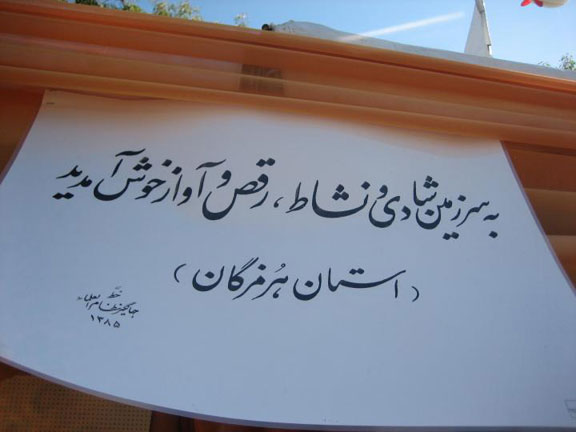 به سرزمین شادی و نشاط، رقص و آواز خوش آمدید
(استان هُرمزگان)
خطّ
۱۳۸۵